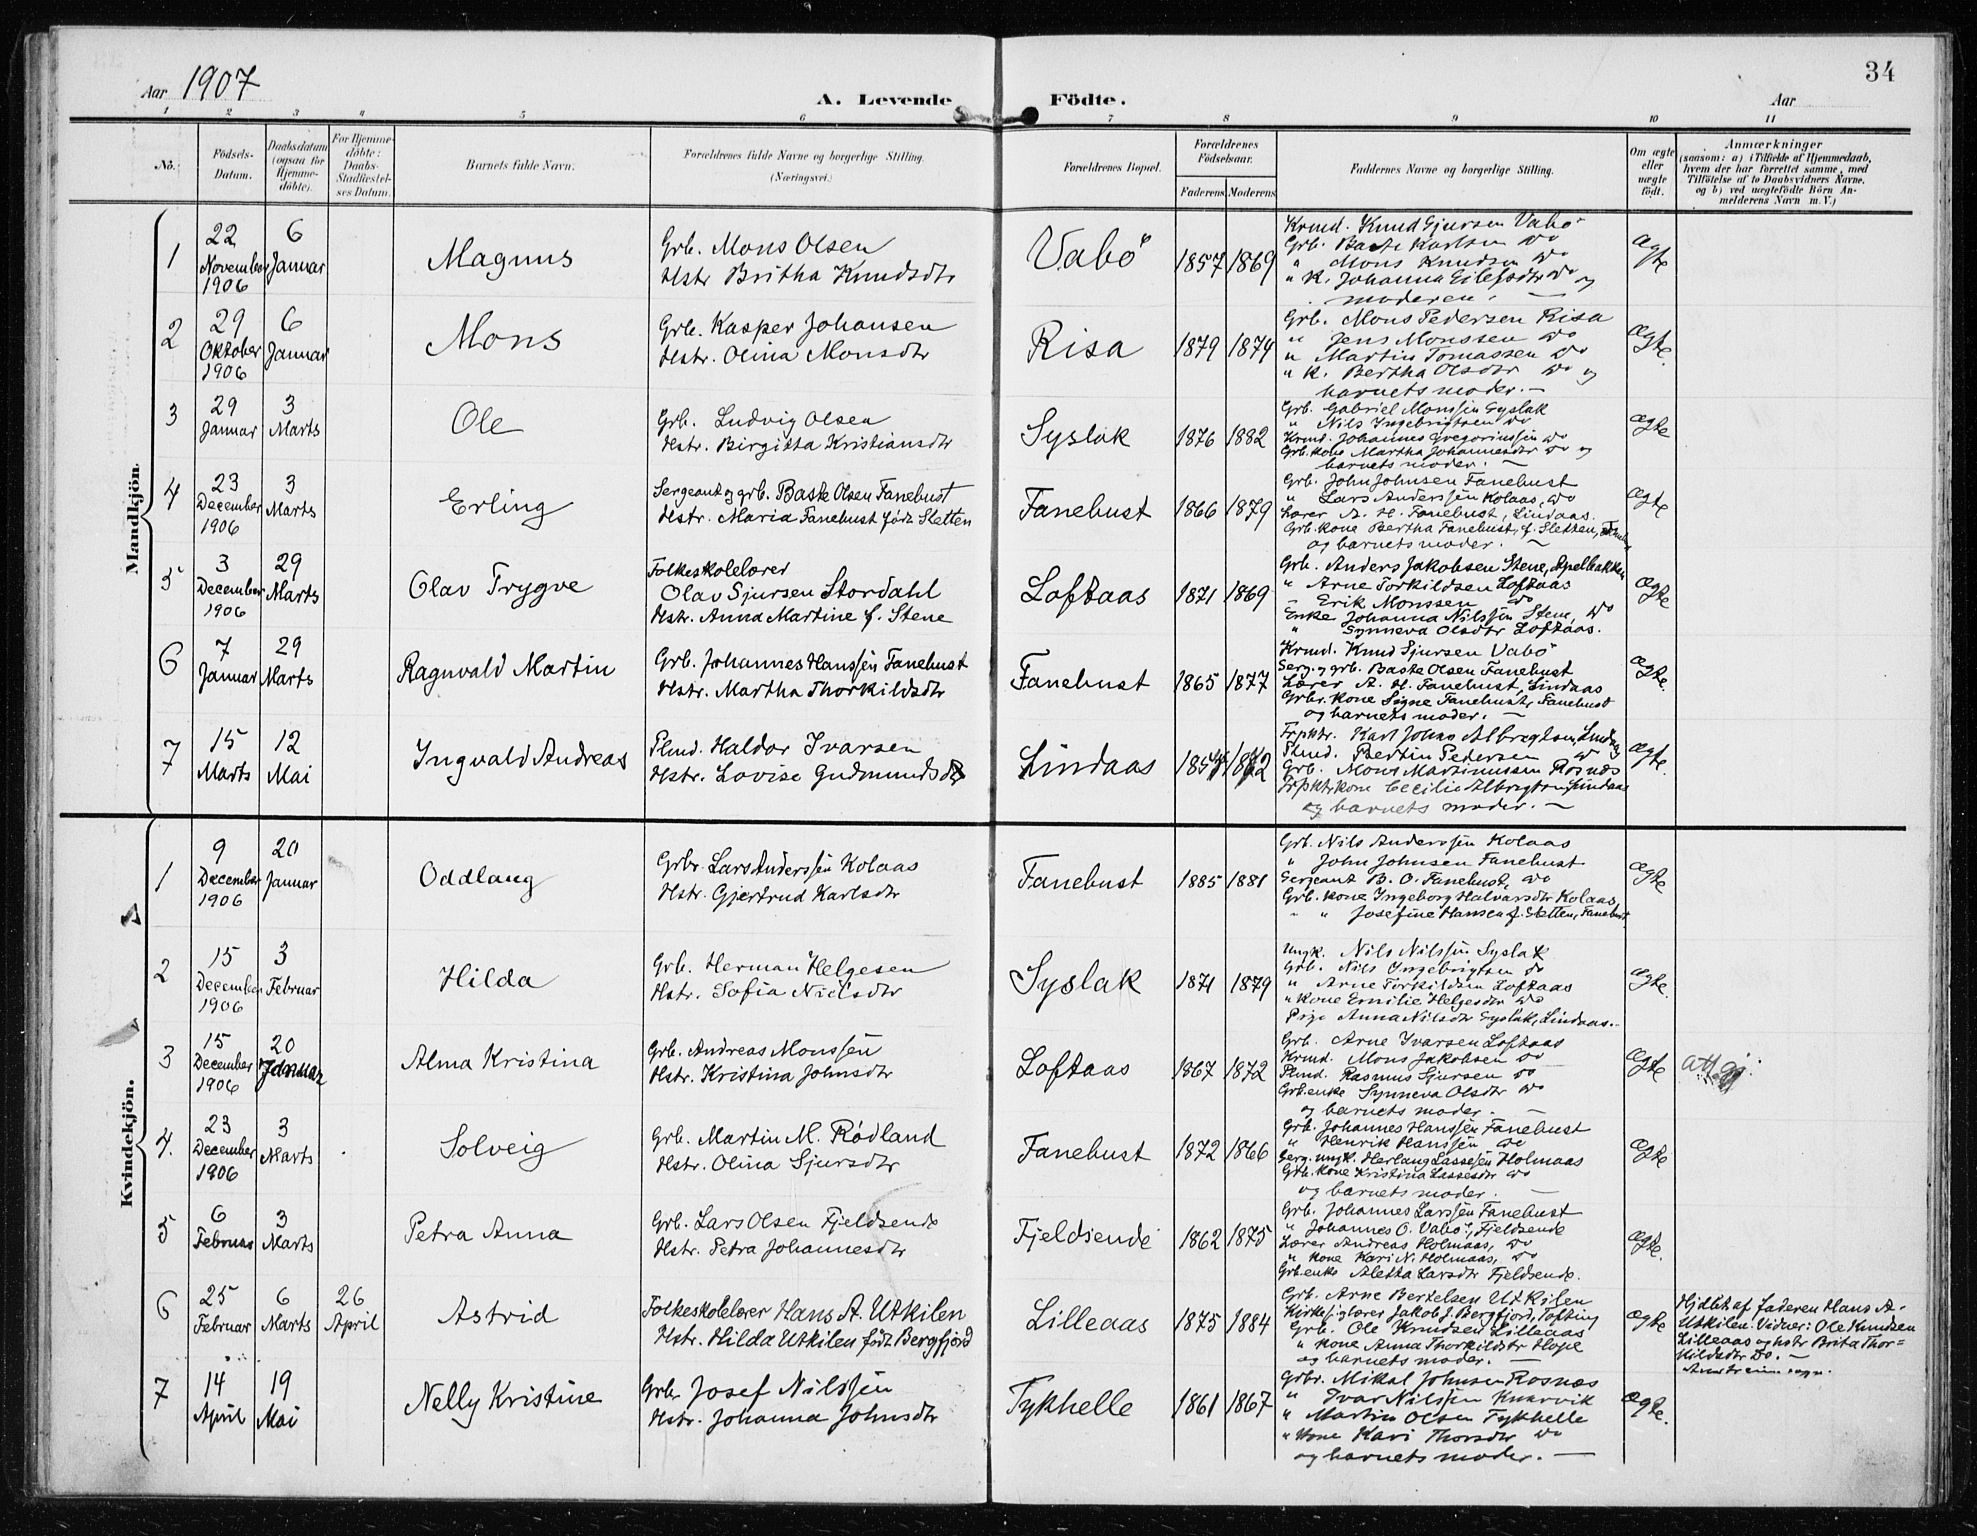 34
Aar 1907
A. Levende Födte.
Aar
1 2 3 4 5 6 7 8 9 10 11
No.
Födsels-Datum.
Daabsdatum (ogsaa for Hjemmedöbte).
For Hjemmedöbte: Daabs-Stadfæstelses Datum.
Barnets fulde Navn.
Forældrenes fulde Navne og borgerlige Stilling.
(Næringsvei.)
Forældrenes Bopæl.
Forældrenes Födselsaar.
Faderens Moderens
Faddernes Navne og borgerlige Stilling.
Om ægte eller uægte födt.
Anmærkninger
(saasom: a) i Tilfælde af Hjemmedaab,
hvem der har forrettet samme, med
Tilföielse af to Daabsvidners Navne,
og b) ved uægtefödte Börn An-
melderens Navn m. V.)
Mandkjön.
1
22 November 1906
6 Januar
Magnus
Grb. Mons Olsen
Hstr Britha Knudsdtr
Vabö
1857 1869
Krmd. Knud Sjursen Vabö
Grb. Baste Karlsen do
" Mons Knudsen do
" K. Johanna Eilefsdtr do og
moderen.
Ægte
2
29 Oktober 1906
6 Januar
Mons
Grb. Kasper Johansen
Hstr. Olina Monsdtr
Risa
1879 1874
Grb. Mons Pedersen Risa
" Jens Monssen do
" Martin Tomassen do
" K. Bertha Olsdtr do og
barnets moder.
Ægte.
3
29 Januar
3 Marts
Ole
Grb. Ludvig Olsen
Hstr. Birgitta Kristiansdtr
Syslak
1876 1882
Grb. Gabriel Monssen Syslak
" Nils Ingebrigtsen do
Krmd. Johannes Gregoriussen do
Grb. kone Martha Johannesdtr do og
barnets moder.
Ægte
4
23 December 1906
3 Marts
Erling
Sergeant og grb. Baste Olsen Fanebust
Hstr. Maria Fanebust født Sletten
Fanebust
1866 1879
Grb. John Johnsen Fanebust
" Lars Anderssen Kolaas, do
Lærer A. H. Fanebust, Lindaas.
Grb. kone Bertha Fanebust, f. Sletten, Fanebust
og barnets moder.
Ægte
5
3 December 1906
29 Marts
Olav Trygve
Folkeskolelærer
Olav Sjursen Stordahl
Hstr. Anna Martine f. Stene
Loftaas
1871 1869
Grb. Anders Jakobsen Stene, Apelbakken
" Arne Torkildsen Loftaas
" Erik Monssen do
Enke Johanna Nilssen Stene, do
" Synneva Olsdtr Loftaas.
Ægte
6
7 Januar
29 Marts
Ragnvald Martin
Grb. Johannes Hanssen Fanebust
Hstr. Martha Thorkildsdtr
Fanebust
1865 1877
Krmd. Knud Sjursen Vabö
Serg. og grb. Baste Olsen Fanebust
Lærer A. H. Fanebust, Lindaas
Grbr. kone Signe Fanebust, Fanebust
og barnets moder.
Ægte.
7
15 Marts
12 Mai
Ingvald Andreas
Plmd. Haldor Ivarsen
Hstr. Lovise Gudmundsdtr
Lindaas
Karl Johan Albregtsen, Lindaas
Plmd. Bertin Pedersen do
Grb. Mons Martinussen Rosnæs
kone Cecilie Albregtsen, Lindaas
og barnets moder.
Ægte.
Kvindekjön.
1
9 December 1906
20 Januar
Oddlaug
Grbr. Lars Anderssen Kolaas
Hstr. Gjertrud Karlsdtr
Fanebust
1885 1881
Grb. Nils Anderssen Kolaas
" John Johnsen Fanebust
Sergeant B. O. Fanebust, do
Grb. kone Ingeborg Halvarsdtr Kolaas,
" " Josefine Hansen f. Sletten, Fanebust
Ægte
2
15 December 1906
3 Februar
Hilda
Grb. Herman Helgesen
Hstr. Sofia Nielsdtr
Syslak
1871 1879
Ungk. Nils Nilssen Syslak
Grb. Nils Ingebrigtsen do
" Arne Torkildsen Loftaas
" kone Emilie Helgesdtr do
Pige Anna Nilsdtr Syslak, Lindaas.
Ægte.
3
15 December 1906
20 Januar
Alma Kristina
Grb. Andreas Monssen
Hstr. Kristina Johnsdtr
Loftaas
1867 1872
Grb. Arne Ivarsen Loftaas
Krmd. Mons Jakobsen do
Plmd. Rasmus Sjursen do
Grb. enke Synneva Olsdtr do
og barnets moder.
Ægte
4.
23 December 1906
3 Marts
Solveig
Grb. Martin M. Rödland
Hstr. Olina Sjursdtr
Fanebust
1872 1866
Grb. Johannes Hanssen Fanebust
" Henrik Hanssen do
Serg. ungk. Herlaug Lassesen Holmaas
Grb. kone Kristina Lassesdtr do
og barnets moder.
Ægte
5
6 Februar
3 Marts
Petra Anna
Grb. Lars Olsen Fjeldsende
Hstr. Petra Johannesdtr
Fjeldsende
1862 1875
Grb. Johannes Larssen Fanebust
" Johannes O. Vabö, Fjeldsende
Lærer Andreas Holmaas, do
" kone Kari N. Holmaas, do
Grb. enke Aletta Larsdtr Fjeldsende.
Ægte.
6
25 Februar
6 Marts
26 April
Astrid
Folkeskolelærer Hans A. Utkilen
Hstr. Hilda Utkilen født Bergfjord
Lilleaas
1875 1884
Grb. Arne Bertelsen Utkilen
Kirkesanger Jakob J. Bergfjord, Tofting
Grb. Ole Knudsen Lilleaas
" kone Anna Thorkildsdtr Hope
og barnets moder.
Ægte
Hjdbt af faderen Hans A.
Utkilen. Vidner: Ole Knudsen
Lilleaas og hstr Brita Thor=
kildsdtr do.
Austrheim sogn.
7
14 April
19 Mai
Nelly Kristine
Grb. Josef Nilssen
Hstr. Johanna Johnsdtr
Tykhelle
1861 1867
Grbr. Mikal Johnsen Rosnæs
" Ivar Nilssen Knarvik
" Martin Olsen Tykhelle
" kone Kari Thorsdtr do
og barnets moder.
Ægte.